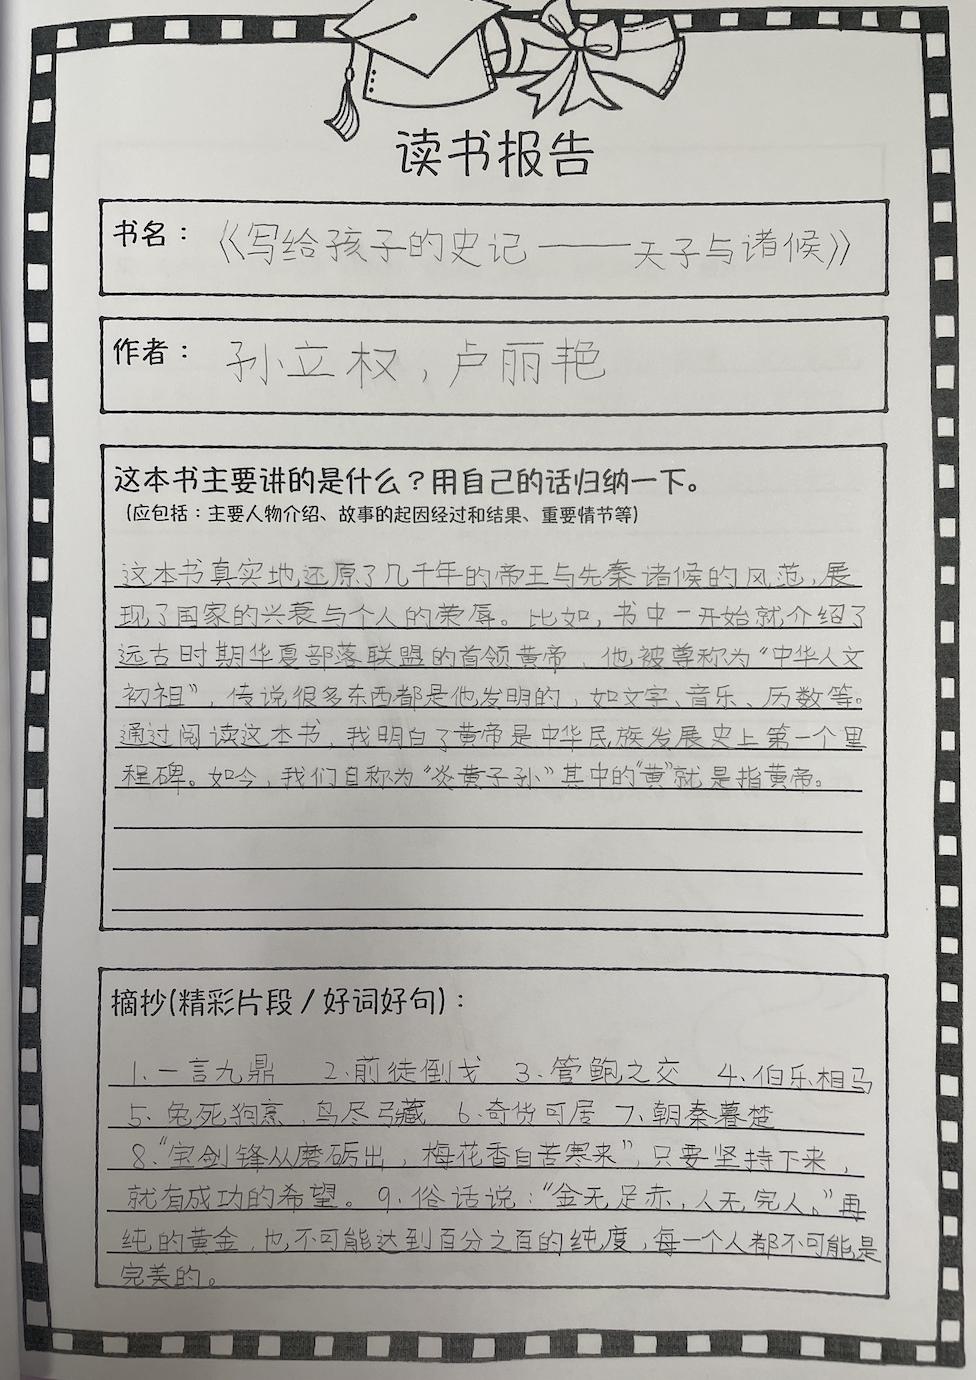 读书报告
书名：《写给孩子的史记——天子与诸候》
作者：孙立权，卢丽艳
这本书主要讲的是什么？用自己的话归纳一下。
(应包括：主要人物介绍、故事的起因经过和结果、重要情节等)
这本书真实地还原了几千年的帝王与先秦诸候的风范，展
现了国家的兴衰与个人的荣辱。比如，书中一开始就介绍了
远古时期华夏部落联盟的首领黄帝，他被尊称为“中华人文
初祖”，传说很多东西都是他发明的，如文字、音乐、历数等。
通过阅读这本书，我明白了黄帝是中华民族发展史上第一个里
程碑。如今，我们自称为“炎黄子孙”其中的“黄”就是指黄帝。
摘抄(精彩片段/好词好句)：
1、一言九鼎 2、前徒倒戈 3、管鲍之交 4、伯乐相马
5、兔死狗烹，鸟尽弓藏 6、奇货可居 7、朝秦暮楚
8、“宝剑锋从磨砺出，梅花香自苦寒来”，只要坚持下来，
就有成功的希望。9、俗话说：“金无足赤，人无完人。”再
纯的黄金，也不可能达到百分之百的纯度，每一个人都不可能是
完美的。